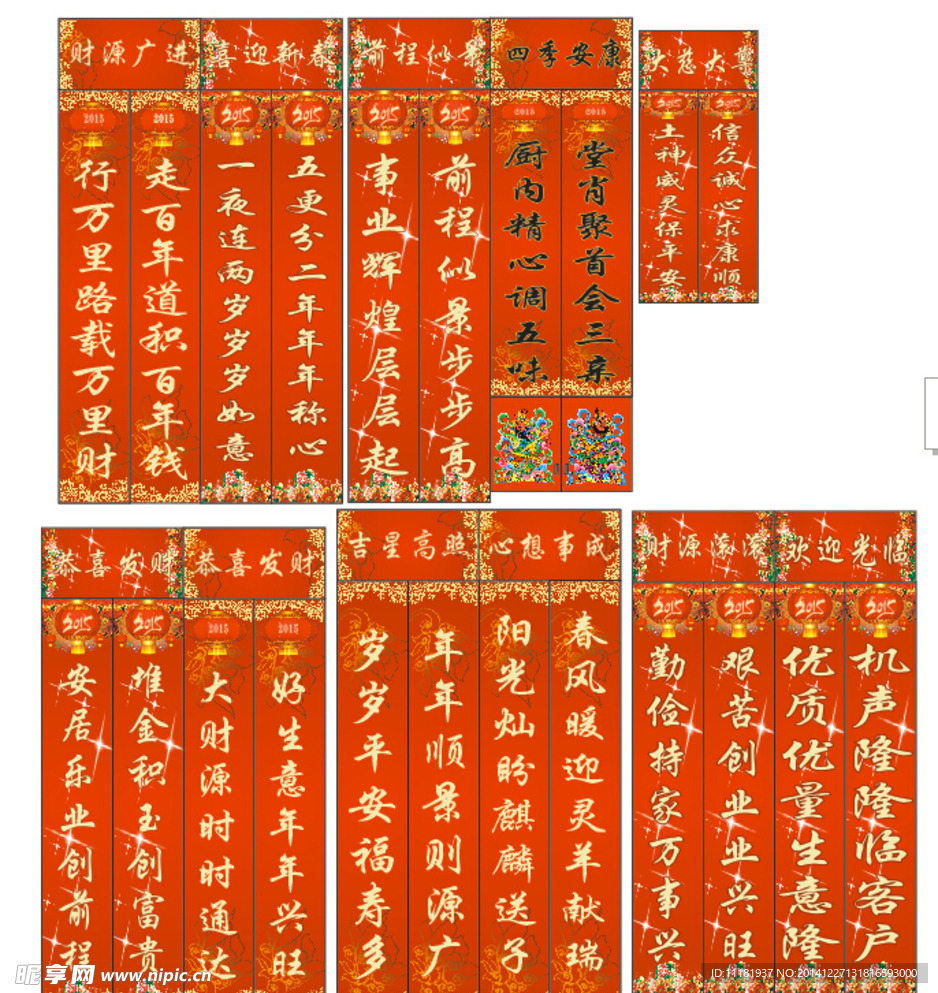 财源广进
2015
行万里路载万里财
2015
走百年道积百年钱
喜迎新春
2015
一夜连两岁岁岁如意
2015
五更分二年年年称心
前程似景
2015
事业辉煌层层起
2015
前程似景步步高
四季安康
2015
厨内精心调五味
2015
堂肖聚首会三亲
大慈大
2015
土神威灵保平安
2015
信众诚心求康顺
恭喜发财
2015
安居乐业创前程
2015
堆金积玉创富贵
恭喜发财
2015
大财源时时通达
2015
好生意年年兴旺
吉星高照
岁岁平安福寿多
年年顺景则源广
心想事成
阳光灿盼麒麟送子
春风暖迎灵羊献瑞
财源滚滚
2015
勤俭持家万事兴
2015
艰苦创业业兴旺
欢迎光临
2015
优质优量生意隆
2015
机声隆隆临客户
昵享网 www.nipic.cn
ID:11181937 NO:20141227131816593000